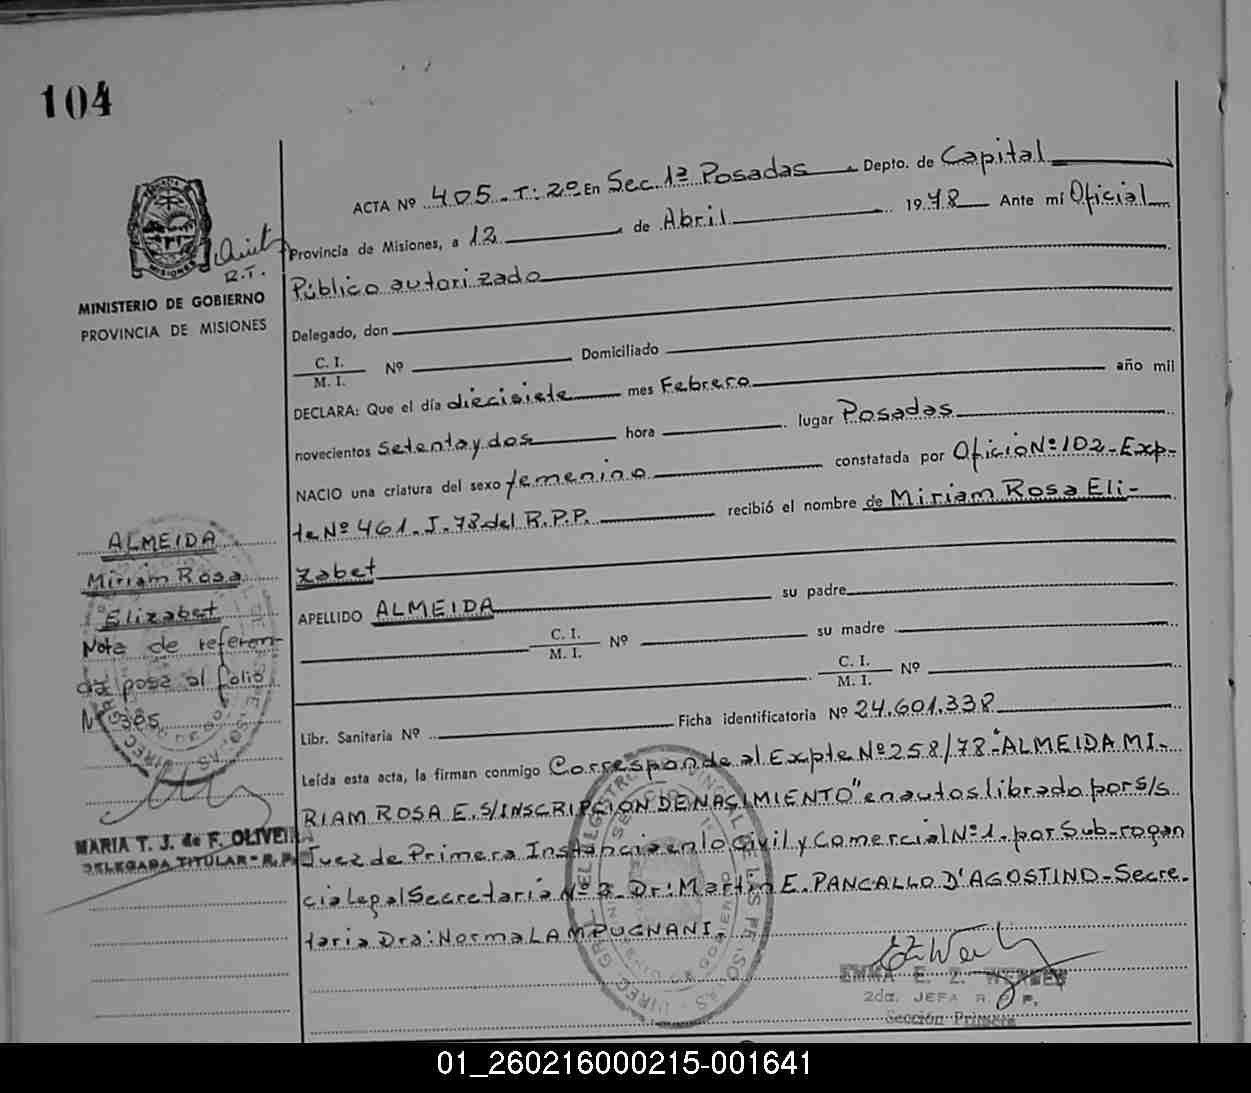 104
ACTA Nº 405. T: 2º En Sec. 1ª Posadas Depto. de Capital
Provincia de Misiones, a 12 de Abril 1978 Ante mí Oficial
R.T.
Público autorizado
MINISTERIO DE GOBIERNO
PROVINCIA DE MISIONES
Delegado, don
C. I.
M. I. Nº Domiciliado
DECLARA: Que el día diecisiete mes Febrero año mil
novecientos setenta y dos hora lugar Posadas
NACIO una criatura del sexo femenino constatada por Oficio Nº 102-Exp-
te Nº 461. J. 78 del R.P.P. recibió el nombre de Miriam Rosa Eli-
zabet
APELLIDO ALMEIDA su padre
C. I.
M. I. Nº su madre
C. I.
M. I. Nº
Libr. Sanitaria Nº Ficha identificatoria Nº 24.601.338
Leída esta acta, la firman conmigo Corresponde al Expte Nº 258/78-"ALMEIDA MI-
RIAM ROSA E. S/INSCRIPCION DE NACIMIENTO" en autos librado por S/S.
Juez de Primera Instancia en lo Civil y Comercial Nº 1. por Sub-rogan
cia Legal Secretaría Nº 2 Dr: Martin E. PANCALLO D'AGOSTINO-Secre-
taria Dra: Norma LAMPUGNANI.
ALMEIDA
Miriam Rosa
Elizabet
Nota de referen-
cia pasa al folio
Nº 385
MARIA T. J. de F. OLIVEIRA
DELEGADA TITULAR - R. P.
EMMA E. Z. WERLEN
2da. JEFA R. P.
Sección Primera
01_260216000215-001641